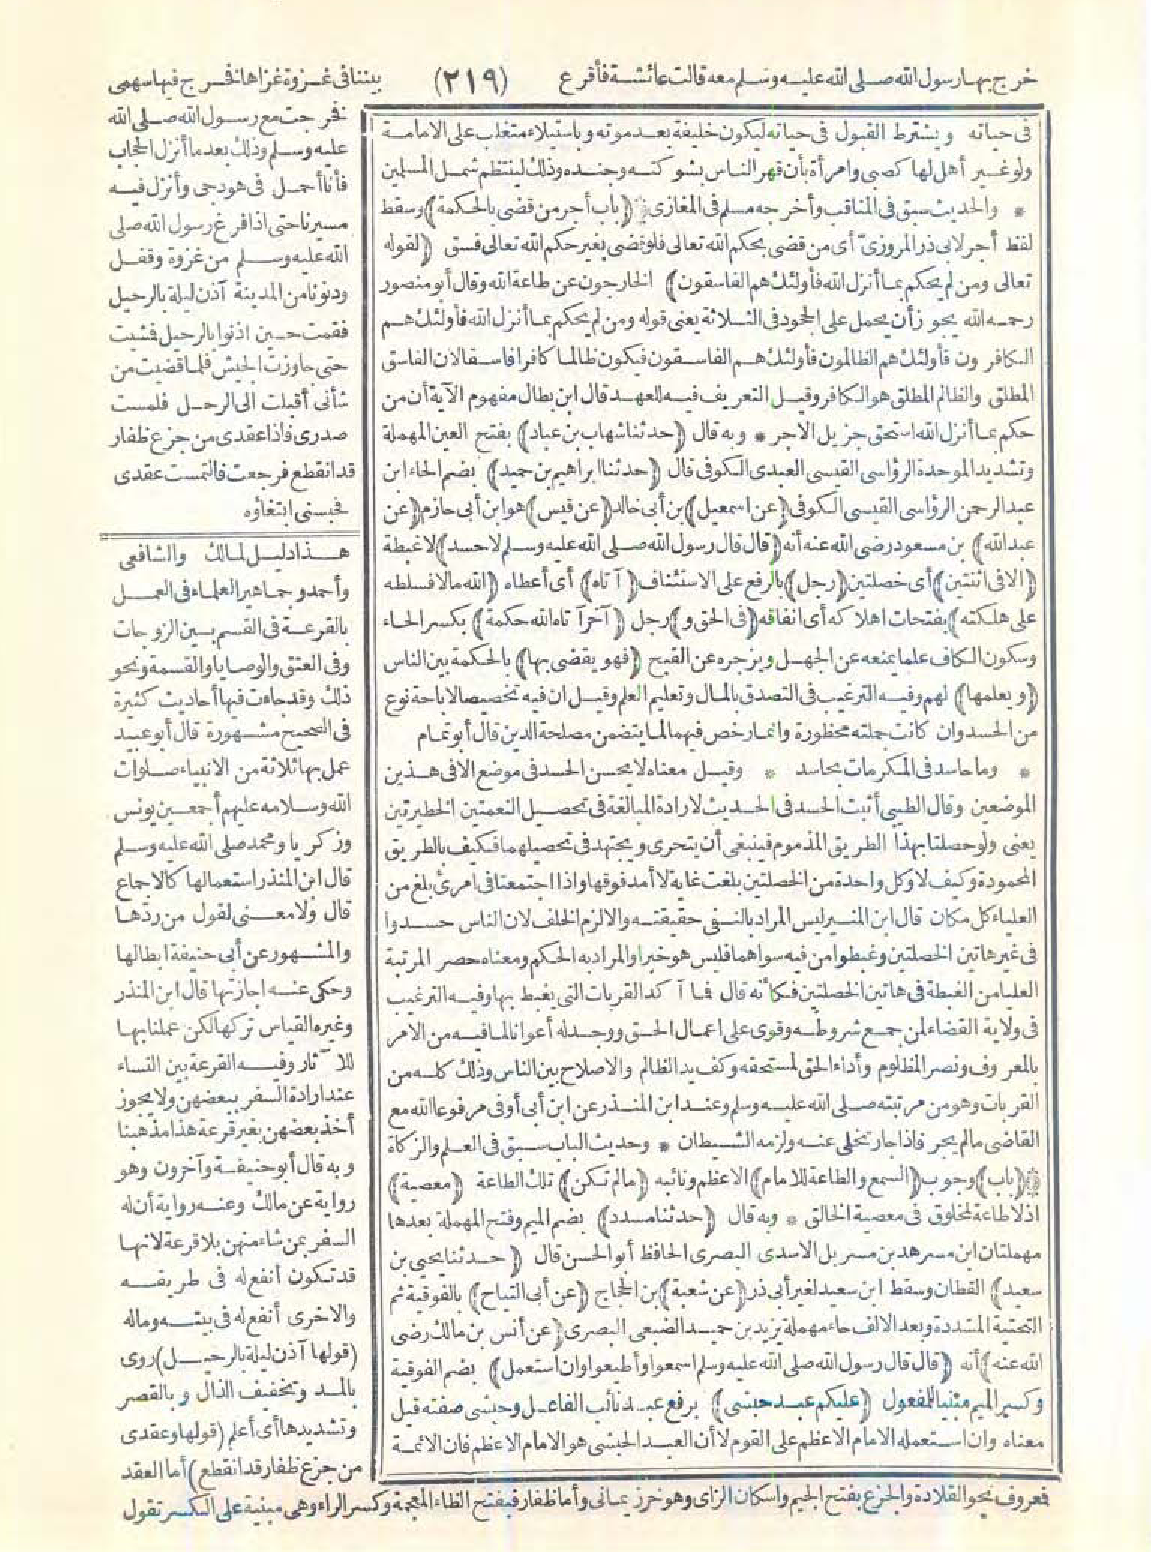 خرج بها رسول الله صلى الله عليه وسلم معه قالت عائشة فأقرع (٢١٩) بيننا فى غزوة غزاها فخرج فيها سهمى
فخرجت مع رسول الله صلى الله
عليه وسلم وذلك بعد ما أنزل الحجاب
فأنا أحمل فى هودجى وأنزل فيه
مسيرنا حتى اذا فرغ رسول الله صلى
الله عليه وسلم من غزوه وقفل
ودنونا من المدينة آذن ليلة بالرحيل
فقمت حين آذنوا بالرحيل فمشيت
حتى جاوزت الجيش فلما قضيت من
شأنى أقبلت الى الرحل فلمست
صدرى فاذا عقدى من جزع ظفار
قد انقطع فرجعت فالتمست عقدى
فحبسنى ابتغاؤه
فى حياته ويشترط القبول فى حياته ليكون خليفة بعد موته وباستيلاء متغلب على الامامة
ولو غير أهل لها كصبى وامرأة بأن قهر الناس بشوكته وجنده وذلك لينتظم شمل المسلمين
* والحديث سبق فى المناقب وأخرجه مسلم فى المغازى ﴿(باب أجر من قضى بالحكمة) وسقط
لفظ أجر لابى ذر المروزى أى من قضى بحكم الله تعالى فلو قضى بغير حكم الله تعالى فسق (لقوله
تعالى ومن لم يحكم بما أنزل الله فأولئك هم الفاسقون) الخارجون عن طاعة الله وقال أبو منصور
رحمه الله يجوز أن يحمل على الجحود فى الثلاثة يعنى قوله ومن لم يحكم بما أنزل الله فأولئك هم
الكافرون فأولئك هم الظالمون فأولئك هم الفاسقون فيكون ظالما كافرا فاسقا لان الفاسق
المطلق والظالم المطلق هو الكافر وقيل التعريف فيه للعهد قال ابن بطال مفهوم الآية أن من
حكم بما أنزل الله استحق جزيل الاجر * وبه قال (حدثنا شهاب بن عباد) بفتح العين المهملة
وتشديد الموحدة الرؤاسى القيسى العبدى الكوفى قال (حدثنا ابراهيم بن حميد) بضم الحاء ابن
عبد الرحمن الرؤاسى القيسى الكوفى (عن اسمعيل) بن أبى خالد (عن قيس) هو ابن أبى حازم (عن
عبد الله) بن مسعود رضى الله عنه أنه (قال قال رسول الله صلى الله عليه وسلم لا حسد) لا غبطة
(الا فى اثنتين) أى خصلتين (رجل) بالرفع على الاستئناف (آتاه) أى أعطاه (الله مالا فسلطه
على هلكته) بفتحات اهلاكه أى انفاقه (فى الحق و) رجل (آخر آتاه الله حكمة) بكسر الحاء
وسكون الكاف علما يمنعه عن الجهل ويزجره عن القبح (فهو يقضى بها) بالحكمة بين الناس
(ويعلمها) لهم وفيه الترغيب فى التصدق بالمال وتعليم العلم وقيل ان فيه تخصيصا لاباحة نوع
من الحسد وان كانت جملته محظورة وانما رخص فيهما لما يتضمن مصلحة الدين قال أبو تمام
* وما حاسد فى المكرمات بحاسد * وقيل معناه لا يحسن الحسد فى موضع الا فى هذين
الموضعين وقال الطيبى أثبت الحسد فى الحديث لارادة المبالغة فى تحصيل النعمتين الخطيرتين
يعنى ولو حصلتا بهذا الطريق المذموم فينبغى أن يتحرى ويجتهد فى تحصيلهما فكيف بالطريق
المحمودة وكيف لا وكل واحدة من الخصلتين بلغت غاية لا أمد فوقها واذا اجتمعتا فى امرئ بلغ من
العلياء كل مكان قال ابن المنير ليس المراد بالنفى حقيقته والا لزم الخلف لان الناس حسدوا
فى غير هاتين الخصلتين وغبطوا من فيه سواهما فليس هو خبرا والمراد به الحكم ومعناه حصر المرتبة
العليا من الغبطة فى هاتين الخصلتين فكأنه قال هما آكد القربات التى يغبط بها وفيه الترغيب
فى ولاية القضاء لمن جمع شروطه وقوى على اعمال الحق ووجد له أعوانا لما فيه من الامر
بالمعروف ونصر المظلوم وأداء الحق لمستحقه وكف يد الظالم والاصلاح بين الناس وذلك كله من
القربات وهو من مرتبته صلى الله عليه وسلم وعند ابن المنذر عن ابن أبى أوفى مرفوعا الله مع
القاضى مالم يجر فاذا جار تخلى عنه ولزمه الشيطان * وحديث الباب سبق فى العلم والزكاة
﴿(باب) وجوب (السمع والطاعة للامام) الاعظم ونائبه (مالم تكن) تلك الطاعة (معصية)
اذ لا طاعة لمخلوق فى معصية الخالق * وبه قال (حدثنا مسدد) بضم الميم وفتح المهملة بعدها
مهملتان ابن مسرهد بن مسربل الاسدى البصرى الحافظ أبو الحسن قال (حدثنا يحيى بن
سعيد) القطان وسقط ابن سعيد لغير أبى ذر (عن شعبة) بن الحجاج (عن أبى التياح) بالفوقية ثم
التحتية المشددة وبعد الالف حاء مهملة يزيد بن حميد الضبعى البصرى (عن أنس بن مالك رضى
الله عنه) أنه (قال قال رسول الله صلى الله عليه وسلم اسمعوا وأطيعوا وان استعمل) بضم الفوقية
وكسر الميم مبنيا للمفعول (عليكم عبد حبشى) برفع عبد نائب الفاعل وحبشى صفته قيل
معناه وان استعمله الامام الاعظم على القوم لا أن العبد الحبشى هو الامام الاعظم فان الائمة
هذا دليل لمالك والشافعى
وأحمد وجماهير العلماء فى العمل
بالقرعة فى القسم بين الزوجات
وفى العتق والوصايا والقسمة ونحو
ذلك وقد جاءت فيها أحاديث كثيرة
فى الصحيح مشهورة قال أبو عبيد
عمل بها ثلاثة من الانبياء صلوات
الله وسلامه عليهم أجمعين يونس
وزكريا ومحمد صلى الله عليه وسلم
قال ابن المنذر استعمالها كالاجماع
قال ولا معنى لقول من ردها
والمشهور عن أبى حنيفة ابطالها
وحكى عنه اجازتها قال ابن المنذر
وغيره القياس تركها لكن عملنا بها
للآثار وفيه القرعة بين النساء
عند ارادة السفر ببعضهن ولا يجوز
أخذ بعضهن بغير قرعة هذا مذهبنا
وبه قال أبو حنيفة وآخرون وهو
رواية عن مالك وعنه رواية أن له
السفر بمن شاء منهن بلا قرعة لانها
قد تكون أنفع له فى طريقه
والاخرى أنفع له فى بيته وماله
(قولها آذن ليلة بالرحيل) روى
بالمد وتخفيف الذال وبالقصر
وتشديدها أى أعلم (قولها وعقدى
من جزع ظفار قد انقطع) أما العقد
فمعروف نحو القلادة والجزع بفتح الجيم واسكان الزاى وهو خرز يمانى وأما ظفار فبفتح الظاء المعجمة وكسر الراء وهى مبنية على الكسر تقول